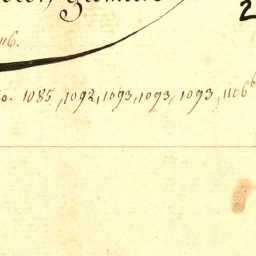 2
116.
o. 1085, 1092, 1093, 1093, 1093, 1106b